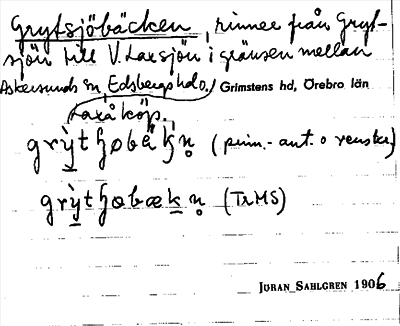 Grytsjöbäcken, rinner från Gryt-
sjön till V. Laxsjön i gränsen mellan
Askersunds sn, Edsbergs hd o. Grimstens hd, Örebro län
Laxå köp.
grỳtɧøbäkn̥ (prim.- ant. o
grỳtɧøbækn̥ (TrMS)
JÖRAN SAHLGREN 1906